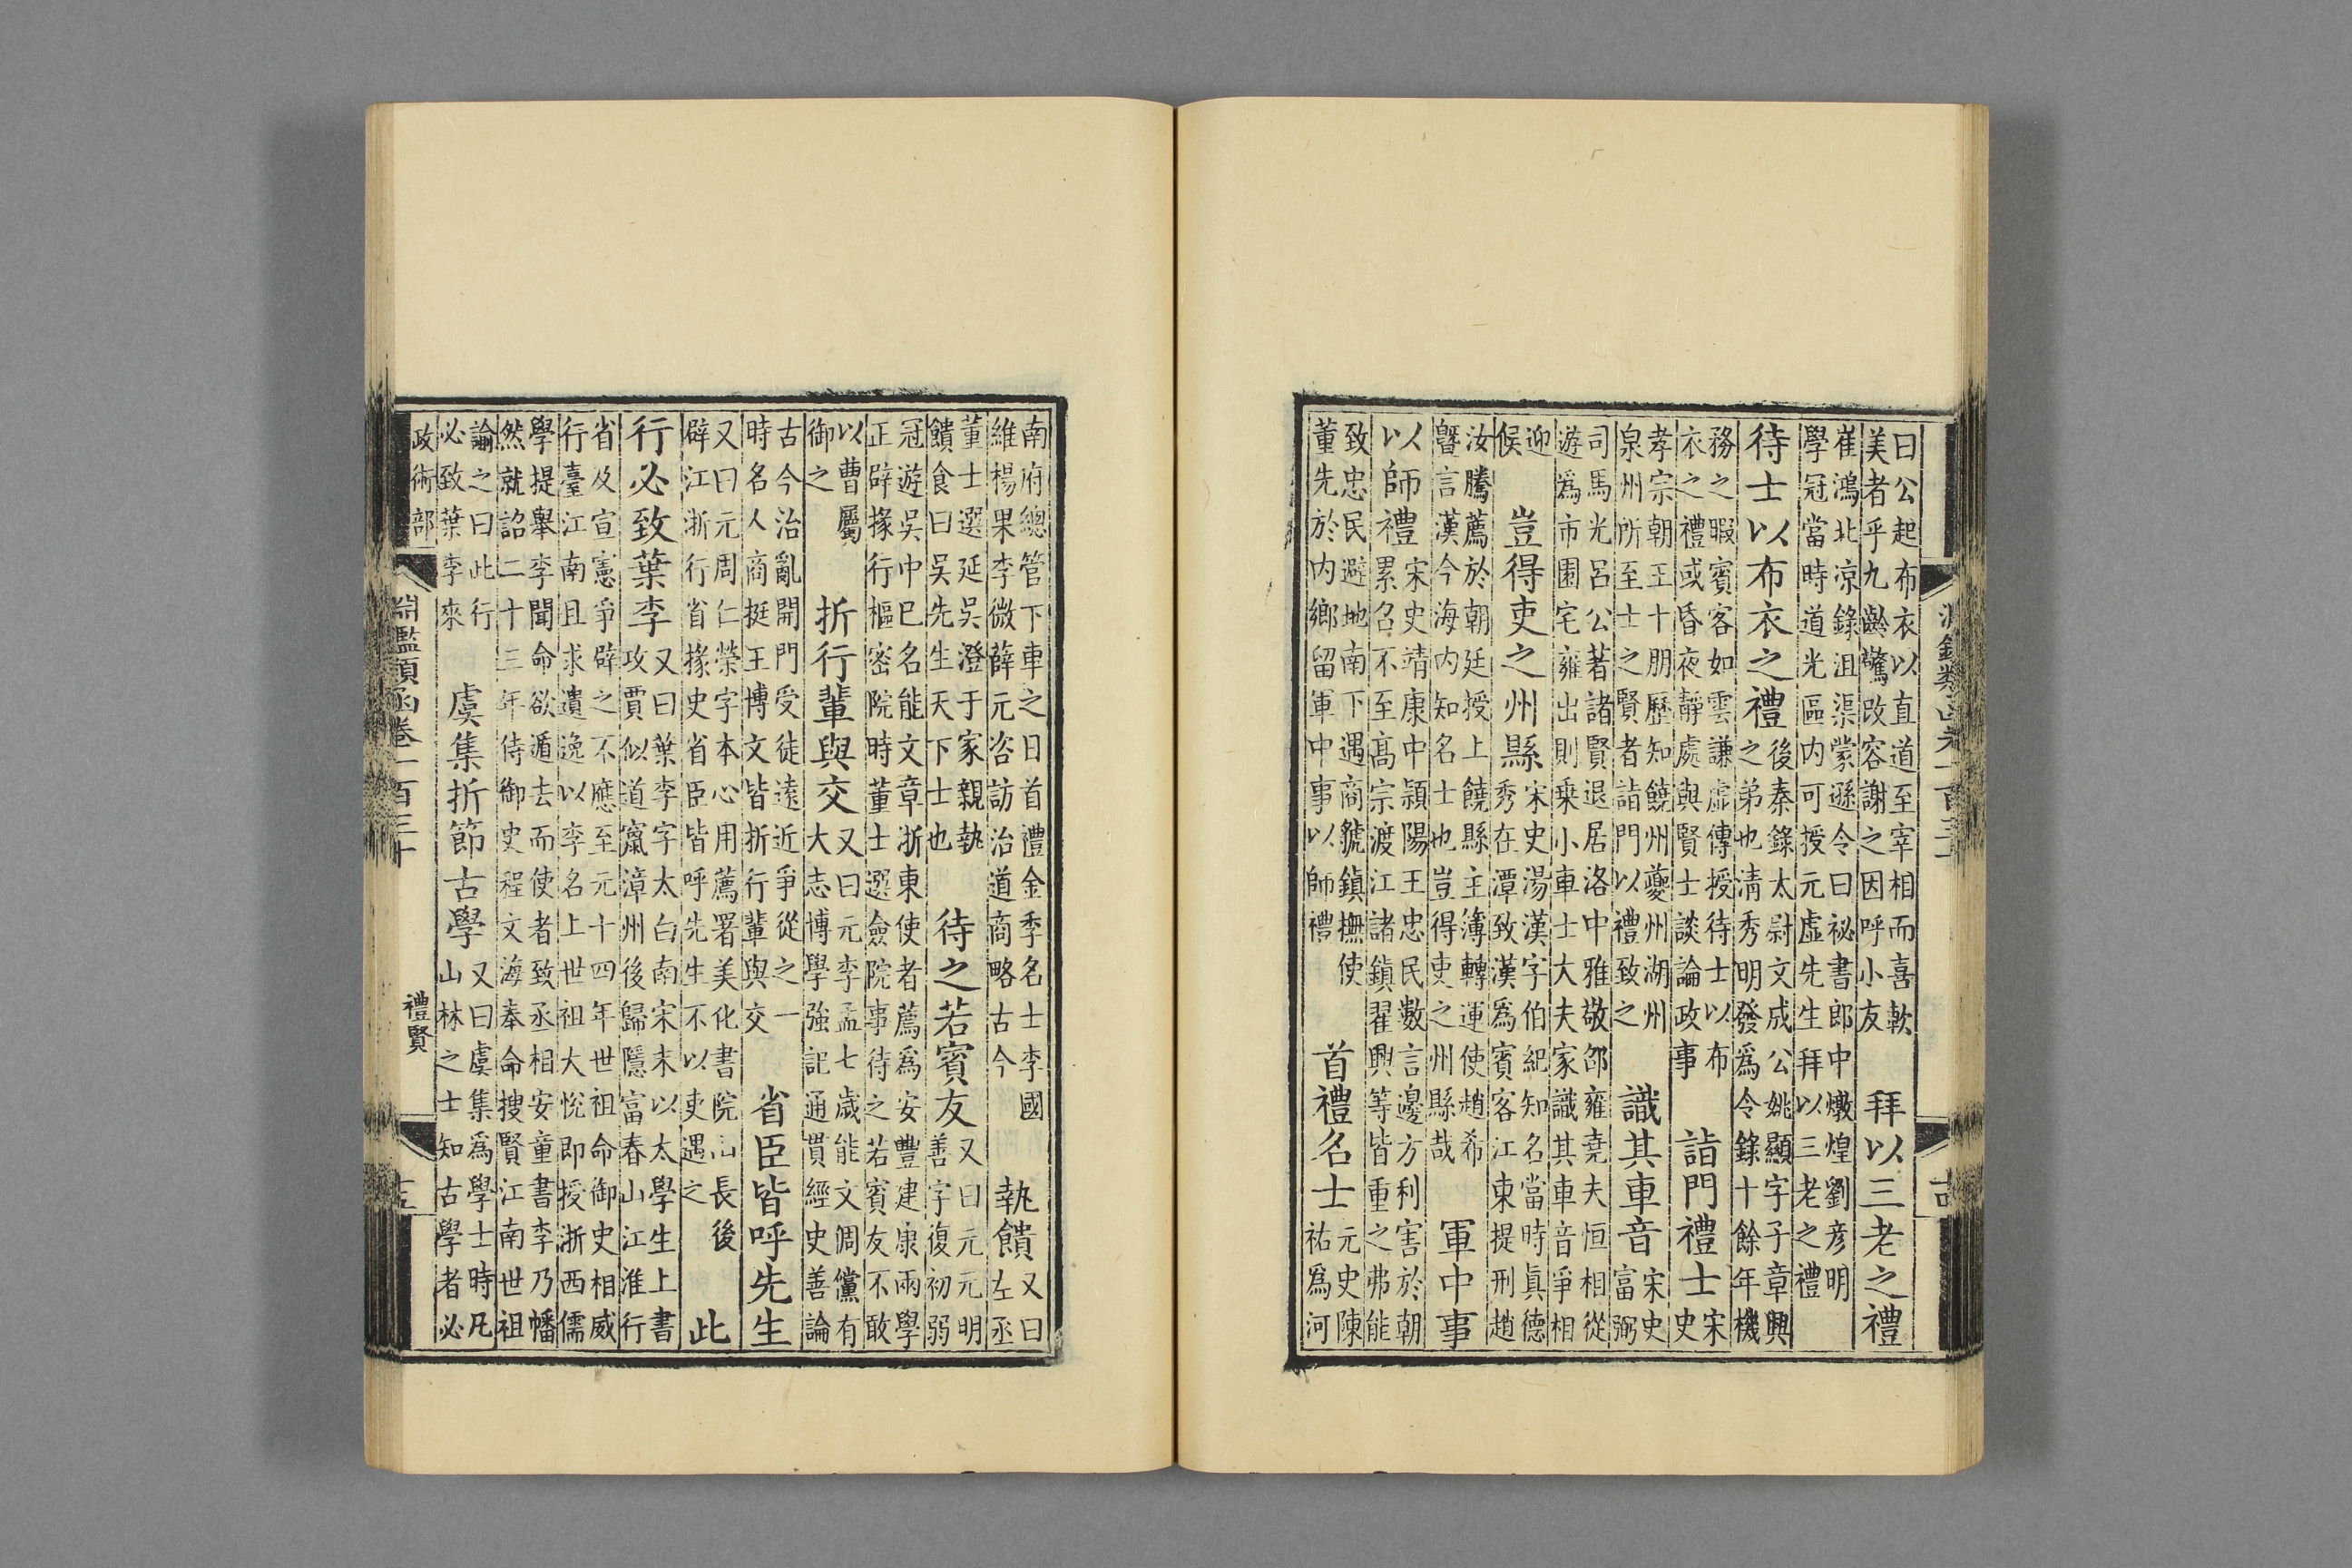 曰公起布衣以直道至宰相而喜軟
美者乎九齡驚改容謝之因呼小友
拜以三老之禮
崔鴻北凉錄沮渠蒙遜令曰祕書郎中燉煌劉彦明
學冠當時道光區内可授元虛先生拜以三老之禮
待士以布衣之禮
後秦錄太尉文成公姚顯字子章興
之弟也清秀明發爲令錄十餘年機
務之暇賓客如雲謙虛傳授待士以布
衣之禮或昏夜靜處與賢士談論政事
詣門禮士
宋
史
孝宗朝王十朋歷知饒州夔州湖州
泉州所至士之賢者詣門以禮致之
識其車音
宋史
富弼
司馬光呂公著諸賢退居洛中雅敬邵雍堯夫恒相從
遊爲市園宅雍出則乗小車士大夫家識其車音爭相
迎
候
豈得吏之州縣
宋史湯漢字伯紀知名當時眞德
秀在潭致漢爲賓客江東提刑趙
汝騰薦於朝廷授上饒縣主簿轉運使趙希
曁言漢今海内知名士也豈得吏之州縣哉
軍中事
以師禮
宋史靖康中潁陽王忠民數言邊方利害於朝
累召不至髙宗渡江諸鎮翟興等皆重之弗能
致忠民避地南下遇商虢鎮撫使
董先於内鄉留軍中事以師禮
首禮名士
元史陳
祐爲河
南府總管下車之日首禮金季名士李國
維楊果李微薛元咨訪治道商略古今
執饋
又曰
左丞
董士選延吳澄于家親執
饋食曰吳先生天下士也
待之若賓友
又曰元元明
善字復初弱
冠遊吳中已名能文章浙東使者薦爲安豐建康兩學
正辟掾行樞密院時董士選僉院事待之若賓友不敢
以曹屬
御之
折行輩與交
又曰元李孟七歲能文倜儻有
大志博學強記通貫經史善論
古今治亂開門受徒遠近爭從之一
時名人商挺王博文皆折行輩與交
省臣皆呼先生
又曰元周仁榮字本心用薦署美化書院山長後
辟江浙行省掾史省臣皆呼先生不以吏遇之
此
行必致葉李
又曰葉李字太白南宋末以太學生上書
攻賈似道竄漳州後歸隱富春山江淮行
省及宣憲爭辟之不應至元十四年世祖命御史相威
行臺江南且求遺逸以李名上世祖大悅即授浙西儒
學提舉李聞命欲遁去而使者致丞相安童書李乃幡
然就詔二十三年侍御史程文海奉命搜賢江南世祖
諭之曰此行
必致葉李來
虞集折節古學
又曰虞集爲學士時凡
山林之士知古學者必
政術部
淵鑑類函卷一百三十
禮賢